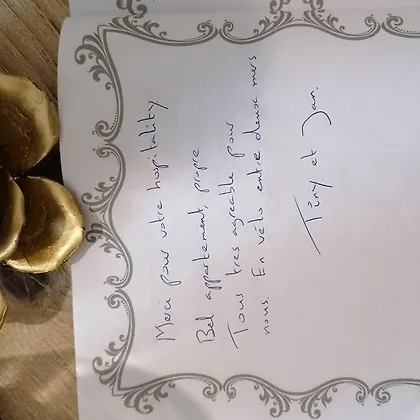 Merci pour votre hospitality
Bel appartement, propre
Tous tres agreable pour
nous. En vélo entre deux mers
Tiny et Jan.